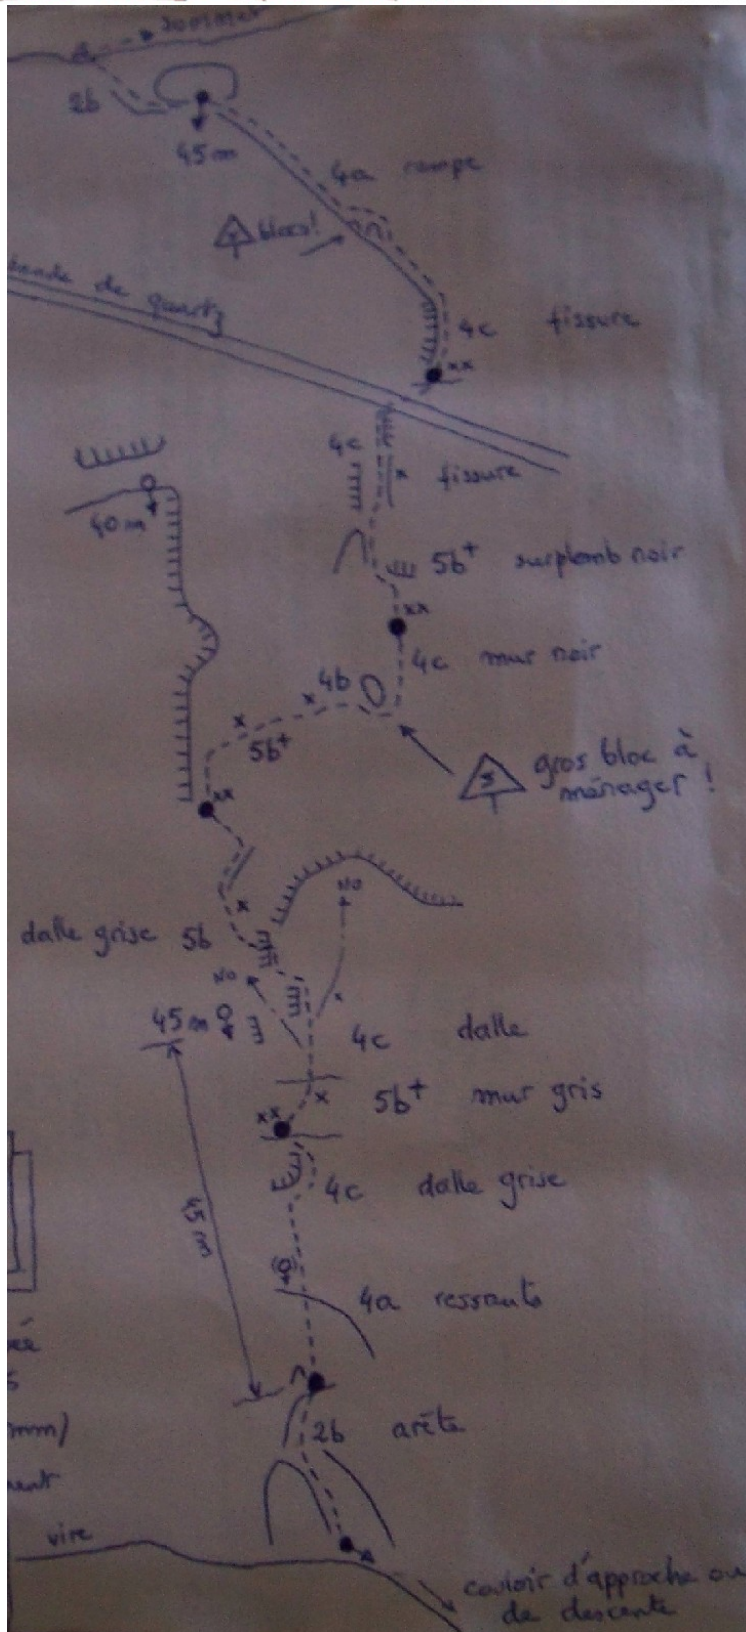 sommet
2b
45m
4a rampe
blocs!
bande de quartz
4c fissure
xx
4c
x fissure
40m
5b+ surplomb noir
xx
4c mur noir
4b
x
x
5b+
gros bloc à
ménager !
xx
x
NO
dalle grise 5b
NO
x
45m
4c dalle
x
5b+ mur gris
xx
4c dalle grise
45m
4a ressauts
2b arête
mm)
vire
couloir d'approche ou
de descente